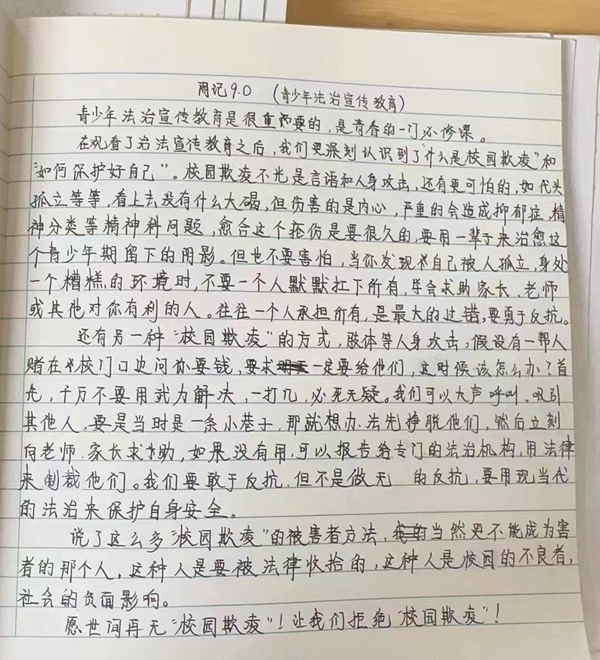 周记9.0 (青少年法治宣传教育)
青少年法治宣传教育是很重要的,是青春的一门必修课。
在观看了治法宣传教育之后,我们更深刻认识到了"什么是校园欺凌"和
"如何保护好自己"。校园欺凌不光是言语和人身攻击,还有更可怕的,如带头
孤立等等,看上去没有什么大碍,但伤害的是内心,严重的会造成抑郁症,精
神分类等精神科问题,愈合这个疮伤是要很久的,要用一辈子来治愈这
个青少年期留下的阴影。但也不要害怕,当你发现自己被人孤立,身处
一个糟糕的环境时,不要一个人默默扛下所有,学会求助家长、老师
或其他对你有利的人。往往一个人承担所有,是最大的过错,要勇于反抗。
还有另一种"校园欺凌"的方式,肢体等人身攻击,假设有一帮人
堵在学校门口边问你要钱,要求一定要给他们,这时候该怎么办?首
先,千万不要用武力解决,一打几,必死无疑。我们可以大声呼叫,吸引
其他人。要是当时是一条小巷子,那就想办法先挣脱他们,然后立刻
向老师、家长求助,如果没有用,可以报告给专门的法治机构,用法律
来制裁他们。我们要敢于反抗,但不是做无 的反抗,要用现当代
的法治来保护自身安全。
说了这么多"校园欺凌"的被害者方法,当然更不能成为害
者的那个人,这种人是要被法律收拾的,这种人是校园的不良者,
社会的负面影响。
愿世间再无"校园欺凌"!让我们拒绝"校园欺凌"!